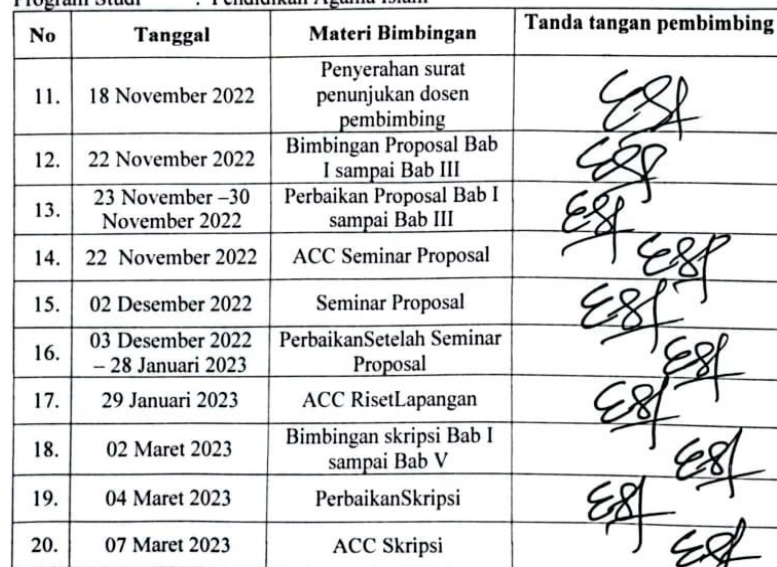 Program Studi : Pendidikan Agama Islam
No Tanggal Materi Bimbingan Tanda tangan pembimbing
11. 18 November 2022 Penyerahan surat
penunjukan dosen
pembimbing
12. 22 November 2022 Bimbingan Proposal Bab
I sampai Bab III
13. 23 November –30
November 2022
Perbaikan Proposal Bab I
sampai Bab III
14. 22 November 2022 ACC Seminar Proposal
15. 02 Desember 2022 Seminar Proposal
16. 03 Desember 2022
– 28 Januari 2023
PerbaikanSetelah Seminar
Proposal
17. 29 Januari 2023 ACC RisetLapangan
18. 02 Maret 2023 Bimbingan skripsi Bab I
sampai Bab V
19. 04 Maret 2023 PerbaikanSkripsi
20. 07 Maret 2023 ACC Skripsi